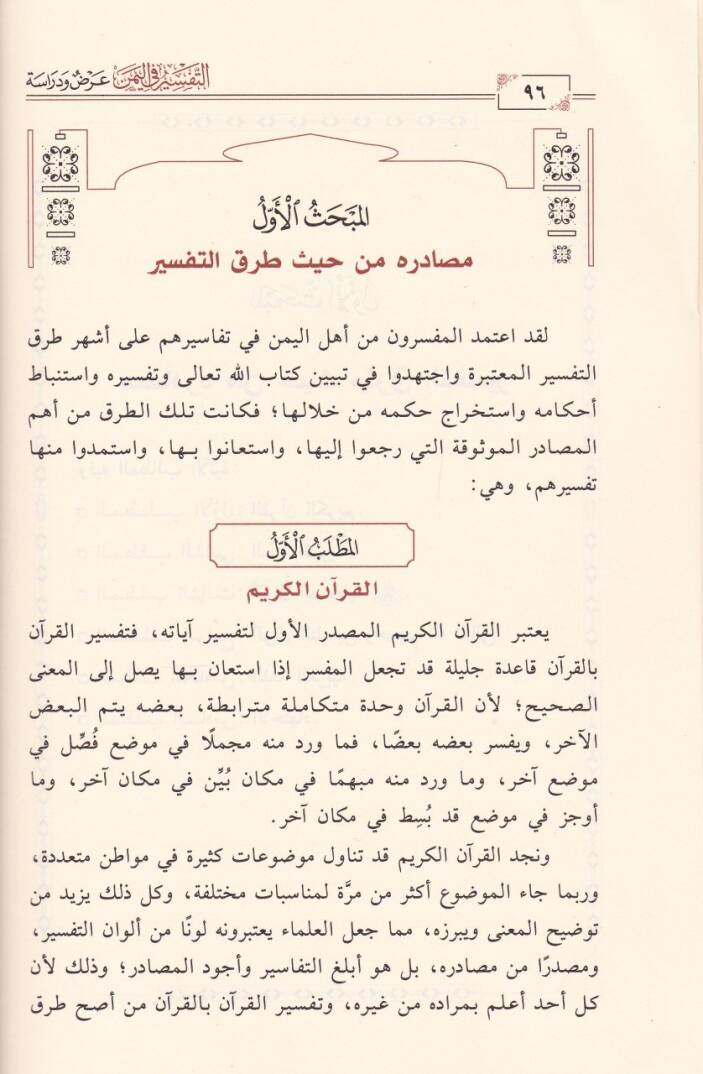 التَّفْسِيرُ فِي اليَمَن عَرْضٌ وَدِرَاسَة
٩٦
المَبْحَثُ الْأَوَّلُ
مصادره من حيث طرق التفسير
لقد اعتمد المفسرون من أهل اليمن في تفاسيرهم على أشهر طرق
التفسير المعتبرة واجتهدوا في تبيين كتاب الله تعالى وتفسيره واستنباط
أحكامه واستخراج حكمه من خلالها؛ فكانت تلك الطرق من أهم
المصادر الموثوقة التي رجعوا إليها، واستعانوا بها، واستمدوا منها
تفسيرهم، وهي:
المَطْلَبُ الْأَوَّلُ
القرآن الكريم
يعتبر القرآن الكريم المصدر الأول لتفسير آياته، فتفسير القرآن
بالقرآن قاعدة جليلة قد تجعل المفسر إذا استعان بها يصل إلى المعنى
الصحيح؛ لأن القرآن وحدة متكاملة مترابطة، بعضه يتم البعض
الآخر، ويفسر بعضه بعضًا، فما ورد منه مجملًا في موضع فُصِّل في
موضع آخر، وما ورد منه مبهمًا في مكان بُيِّن في مكان آخر، وما
أوجز في موضع قد بُسِط في مكان آخر.
ونجد القرآن الكريم قد تناول موضوعات كثيرة في مواطن متعددة،
وربما جاء الموضوع أكثر من مرَّة لمناسبات مختلفة، وكل ذلك يزيد من
توضيح المعنى ويبرزه، مما جعل العلماء يعتبرونه لونًا من ألوان التفسير،
ومصدرًا من مصادره، بل هو أبلغ التفاسير وأجود المصادر؛ وذلك لأن
كل أحد أعلم بمراده من غيره، وتفسير القرآن بالقرآن من أصح طرق